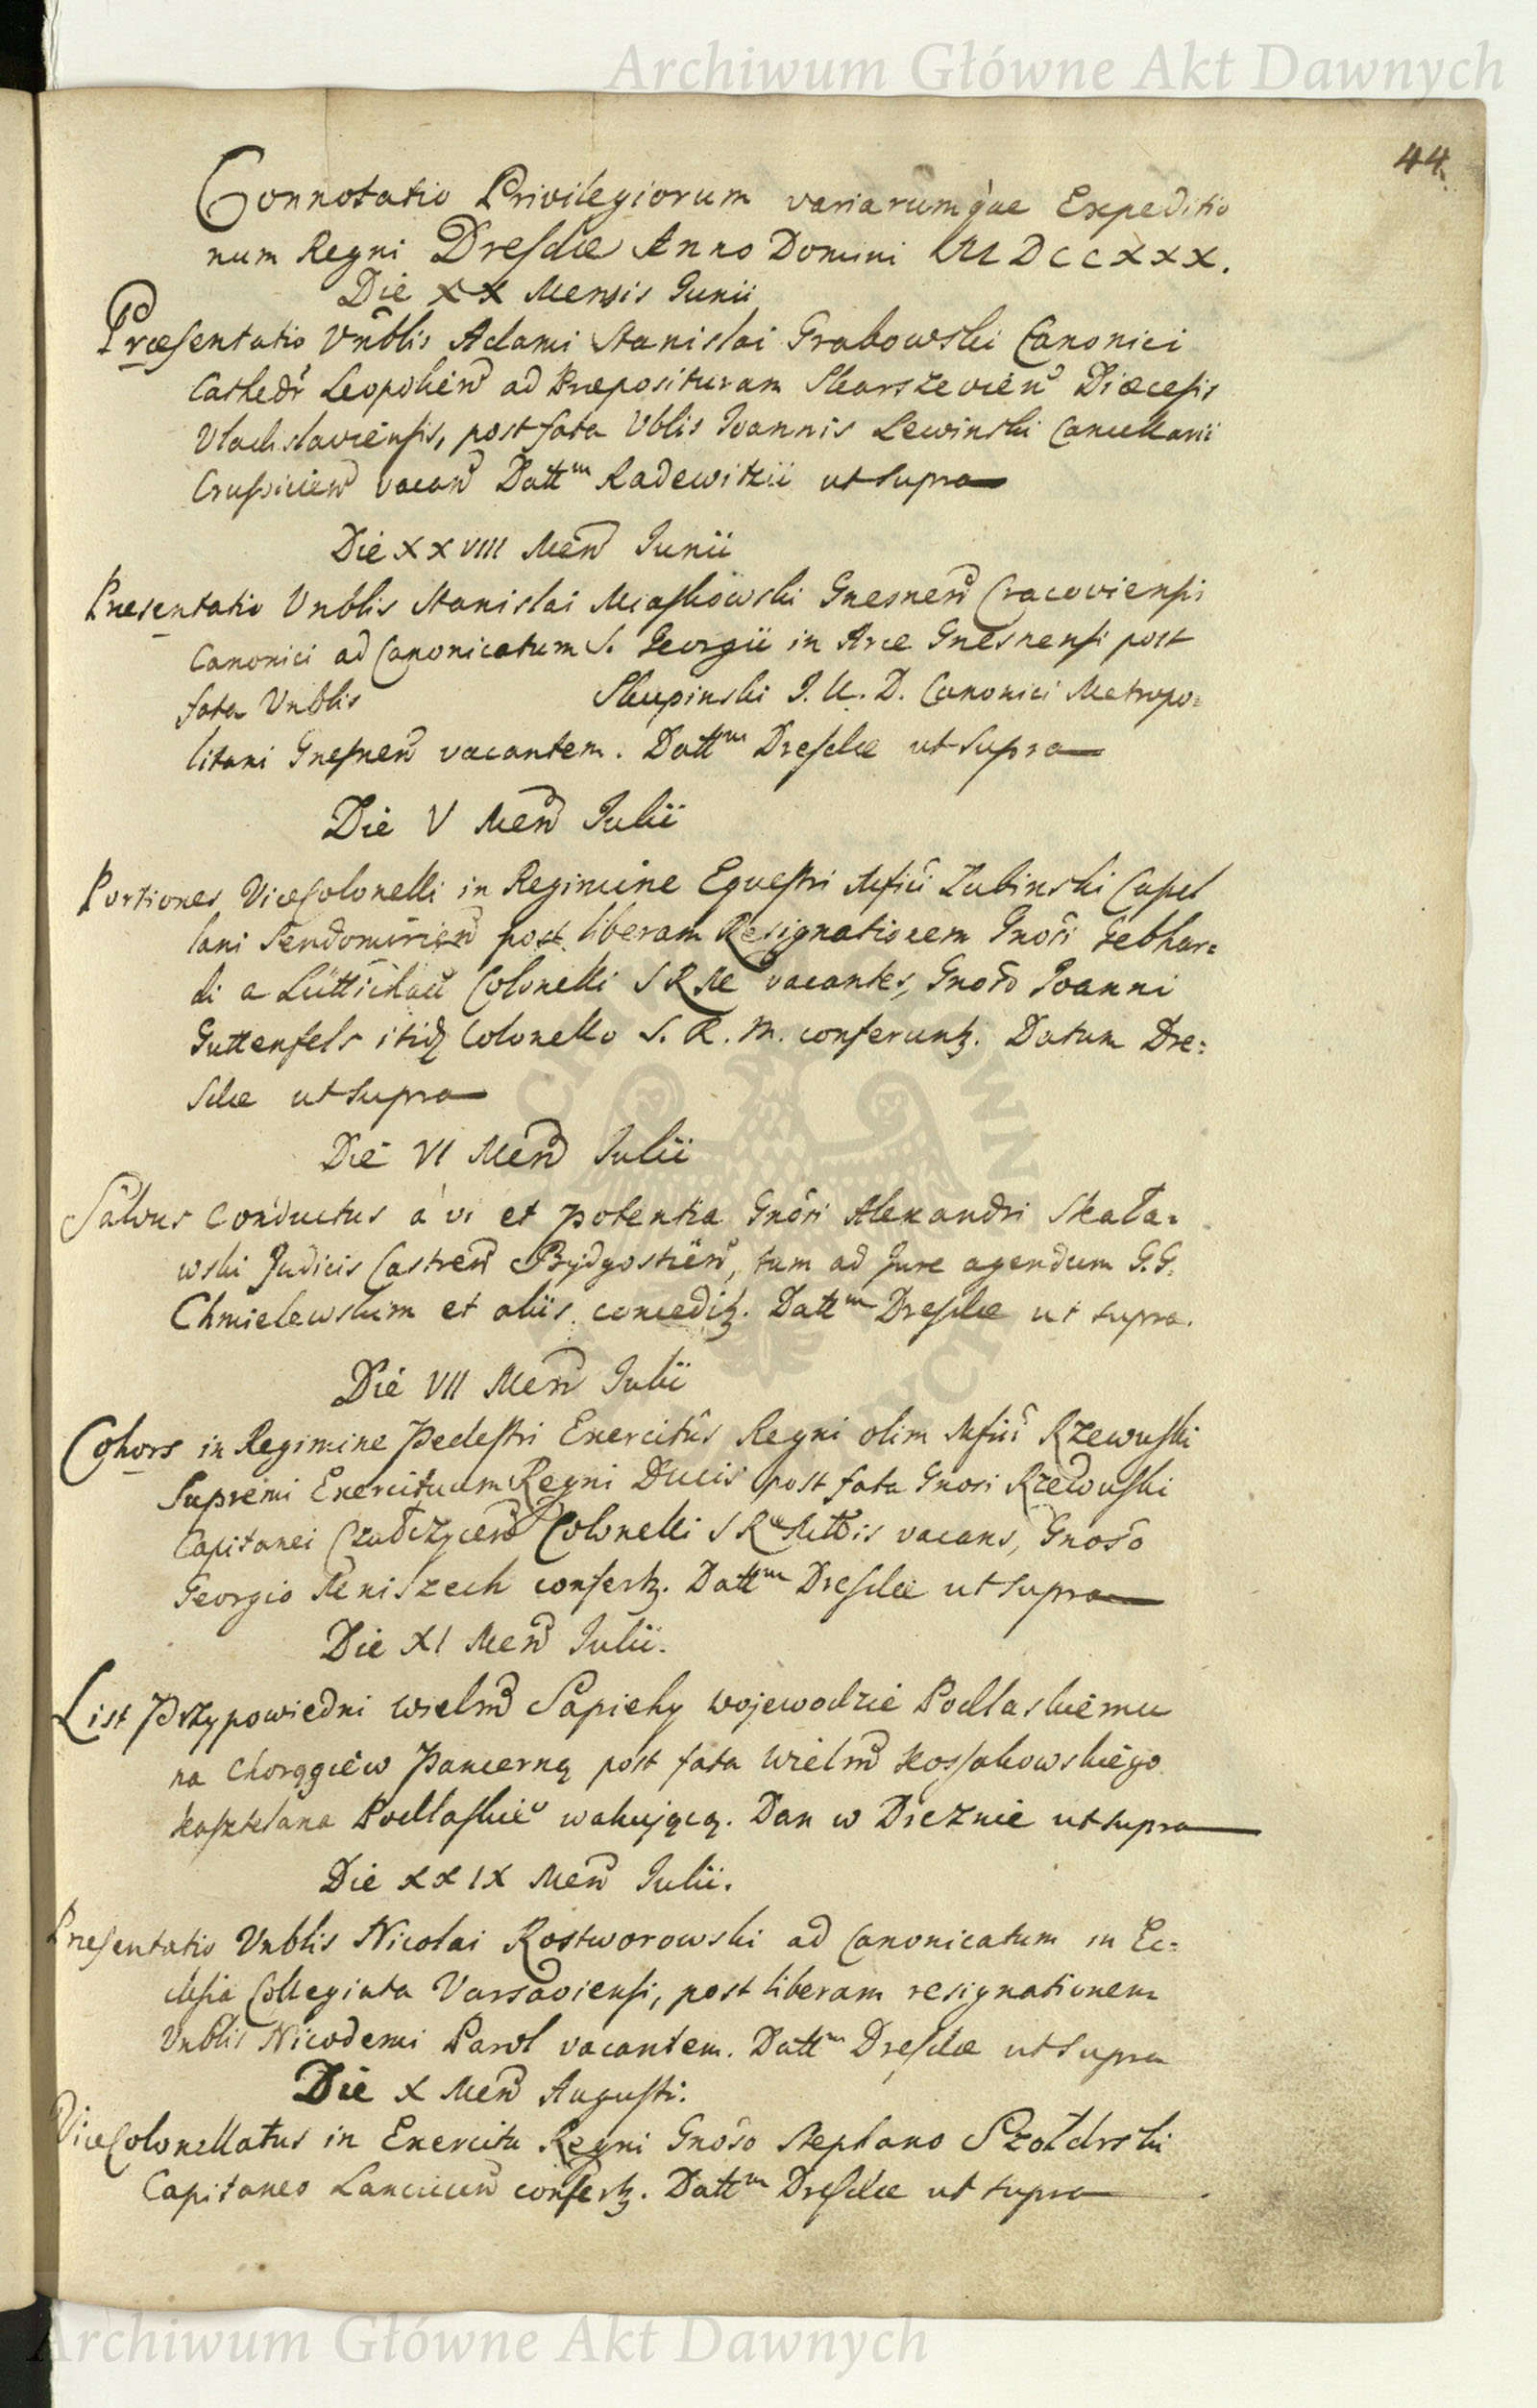 Archiwum Główne Akt Dawnych
44.
Connotatio Privilegiorum variarumque Expeditio
num Regni Dresdæ Anno Domini MDCCXXX.
Die XX Mensis Junii
Præsentatio Vnblis Adami Stanislai Grabowski Canonici
Cathedr Leopolien ad Præposituram Skarszevien Diæcesis
Vladislaviensis, post fata Vblis Joannis Lewinski Cancellarii
Crusvicien vacan Dattm Radewitzii ut supra
Die XXVIII Men Junii
Præsentatio Vnblis Stanislai Miaskowski Gnesnen Cracoviensis
Canonici ad Canonicatum S. Georgii in Arce Gnesnensi post
fata Vnblis Skupinski J. U. D. Canonici Metropo=
litani Gnesnen vacantem. Dattm Dresdæ ut supra
Die V Men Julii
Portiones ViceColonelli in Regimine Equestri Mfici Lubinski Castel
lani Sendomirien post liberam Resignationem Gnosi Gebhar=
di a Lüttichau Colonelli S R M vacantes, Gnoso Joanni
Guttenfels itidq Colonello S. R. M. conferuntz. Datum Dre=
sdæ ut supra
Die VI Men Julii
Salvus Conductus a vi et potentia Gnosi Alexandri Skała=
wski Judicis Castren Bydgostien, tum ad Jure agendum G.G.
Chmielewskim et aliis conceditz. Dattm Dresdæ ut supra.
Die VII Men Julii
Cohors in Regimine Pedestri Exercitûs Regni olim Mfici Rzewuski
Supremi Exercituum Regni Ducis post fata Gnosi Rzewuski
Capitanei Colonelli S R Mttis vacans, Gnoso
Georgio Meniszech confertz. Dattm Dresdæ ut supra
Die XI Men Julii.
List Przypowiedni Wielm Sapiehy Wojewodzie Podlaskiemu
na Chorągiew Pancerną post fata Wielm Kossakowskiego
Kasztelana Podlaskieo wakującą. Dan w Dreznie ut supra
Die XXIX Men Julii.
Præsentatio Vnblis Nicolai Rostworowski ad Canonicatum in Ec=
clesia Collegiata Varsaviensi, post liberam resignationem
Vnblis Nicodemi Parol vacantem. Dattm Dresdæ ut supra
Die X Men Augusti.
ViceColonellatus in Exercitu Regni Gnoso Stephano Szołdrski
Capitaneo Lancicien confertz. Dattm Dresdæ ut supra
Archiwum Główne Akt Dawnych